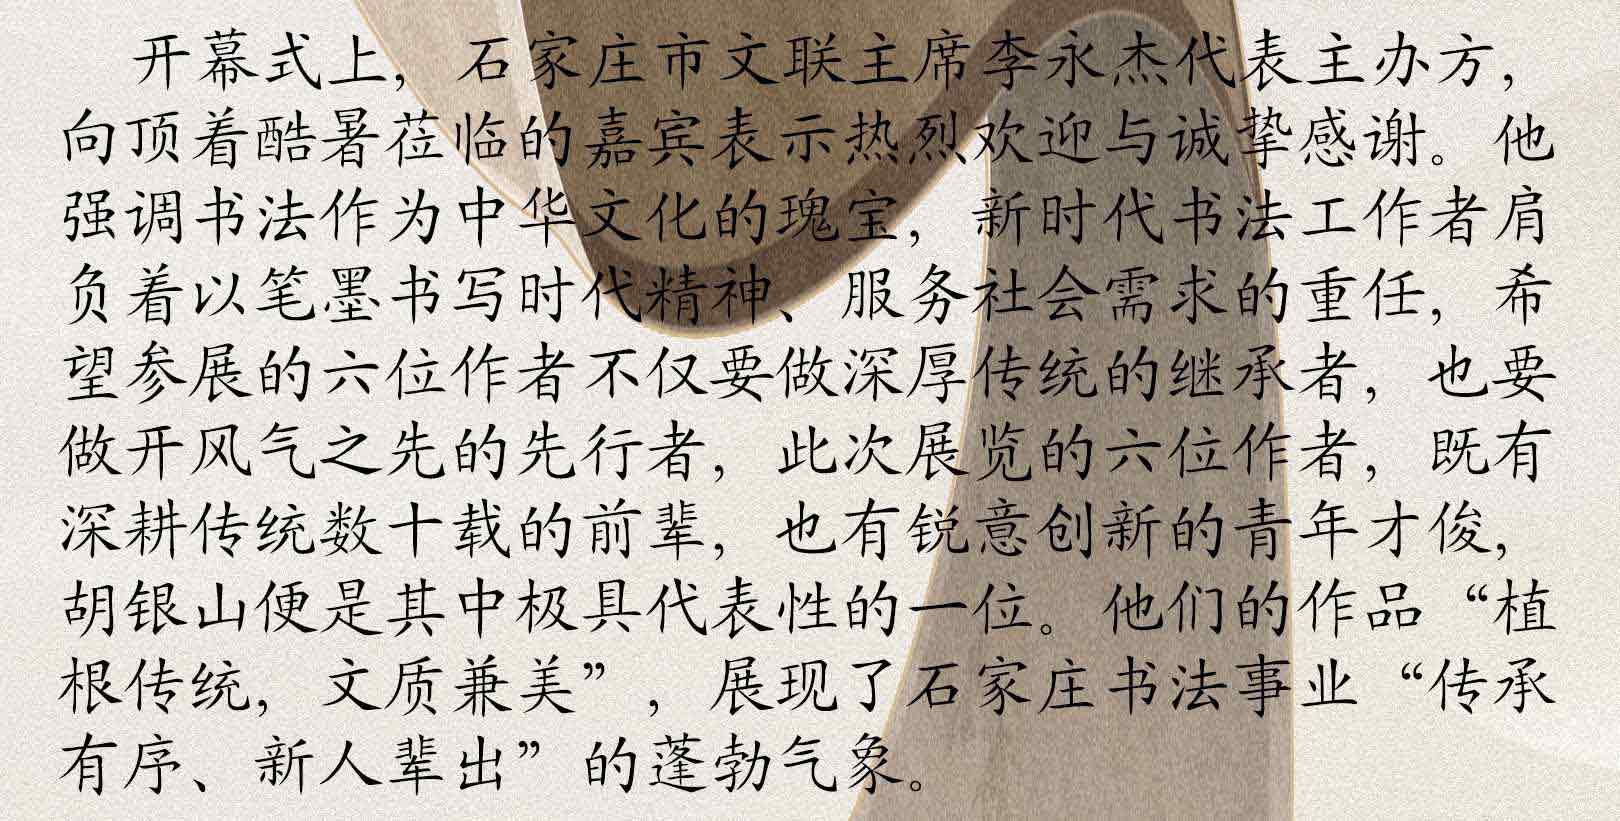 开幕式上，石家庄市文联主席李永杰代表主办方，
向顶着酷暑莅临的嘉宾表示热烈欢迎与诚挚感谢。他
强调书法作为中华文化的瑰宝，新时代书法工作者肩
负着以笔墨书写时代精神、服务社会需求的重任，希
望参展的六位作者不仅要做深厚传统的继承者，也要
做开风气之先的先行者，此次展览的六位作者，既有
深耕传统数十载的前辈，也有锐意创新的青年才俊，
胡银山便是其中极具代表性的一位。他们的作品“植
根传统，文质兼美”，展现了石家庄书法事业“传承
有序、新人辈出”的蓬勃气象。